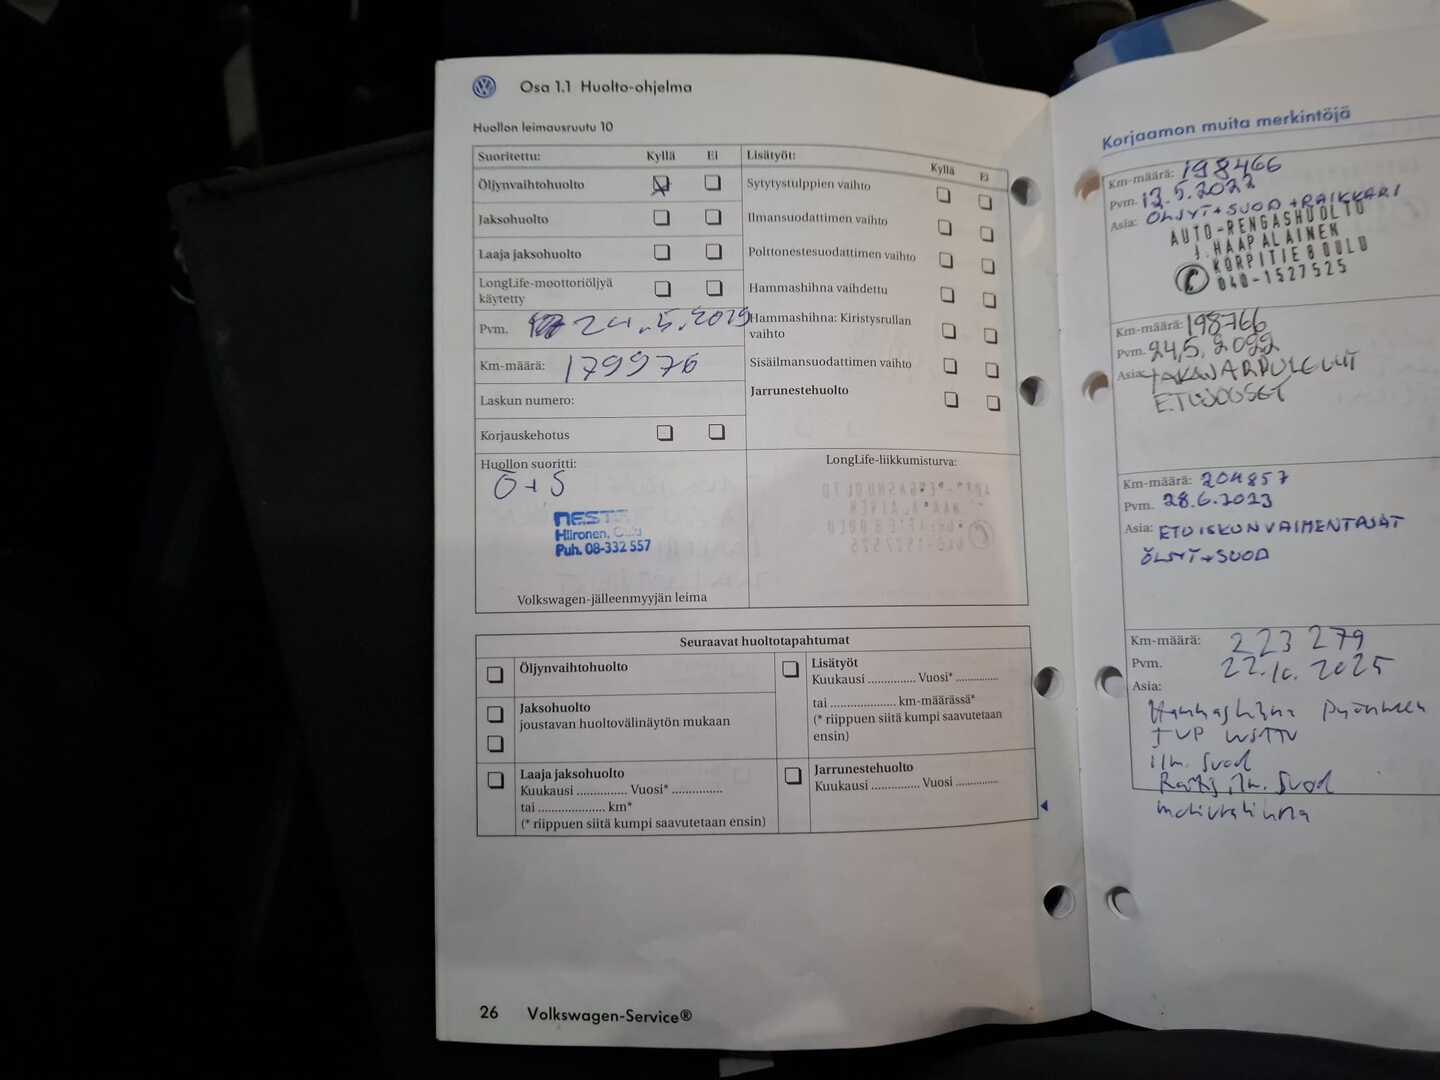 Osa 1.1 Huolto-ohjelma
Huollon leimausruutu 10
Suoritettu: Kyllä Ei
Öljynvaihtohuolto
Jaksohuolto
Laaja jaksohuolto
LongLife-moottoriöljyä
käytetty
Pvm. 24.5.2019
Km-määrä: 179976
Laskun numero:
Korjauskehotus
Huollon suoritti:
Ö+S
NESTE
Hiironen, Oulu
Puh. 08-332 557
Volkswagen-jälleenmyyjän leima
Lisätyöt: Kyllä Ei
Sytytystulppien vaihto
Ilmansuodattimen vaihto
Polttonestesuodattimen vaihto
Hammashihna vaihdettu
Hammashihna: Kiristysrullan
vaihto
Sisäilmansuodattimen vaihto
Jarrunestehuolto
LongLife-liikkumisturva:
Seuraavat huoltotapahtumat
Öljynvaihtohuolto
Jaksohuolto
joustavan huoltovälinäytön mukaan
Laaja jaksohuolto
Kuukausi ............... Vuosi* ...............
tai .................... km*
(* riippuen siitä kumpi saavutetaan ensin)
Lisätyöt
Kuukausi .............. Vuosi* .............
tai .................... km-määrässä*
(* riippuen siitä kumpi saavutetaan
ensin)
Jarrunestehuolto
Kuukausi .............. Vuosi .............
26 Volkswagen-Service®
Korjaamon muita merkintöjä
Km-määrä: 198466
Pvm. 12.5.2022
Asia: ÖLJYT+SUOD+RAIKKARI
AUTO-RENGASHUOLTO
J. HAAPALAINEN
KORPITIE 8 OULU
040-1527525
Km-määrä: 198766
Pvm. 24.5.2022
Asia: TAKAJARRULEVYT
Km-määrä: 204857
Pvm. 28.6.2023
Asia: ETUISKUNVAIMENTAJAT
ÖLJYT+SUOD
Km-määrä: 223 279
Pvm. 22.10.2025
Asia:
Hammashihna
ilm. suod
Raitis ilm. suod